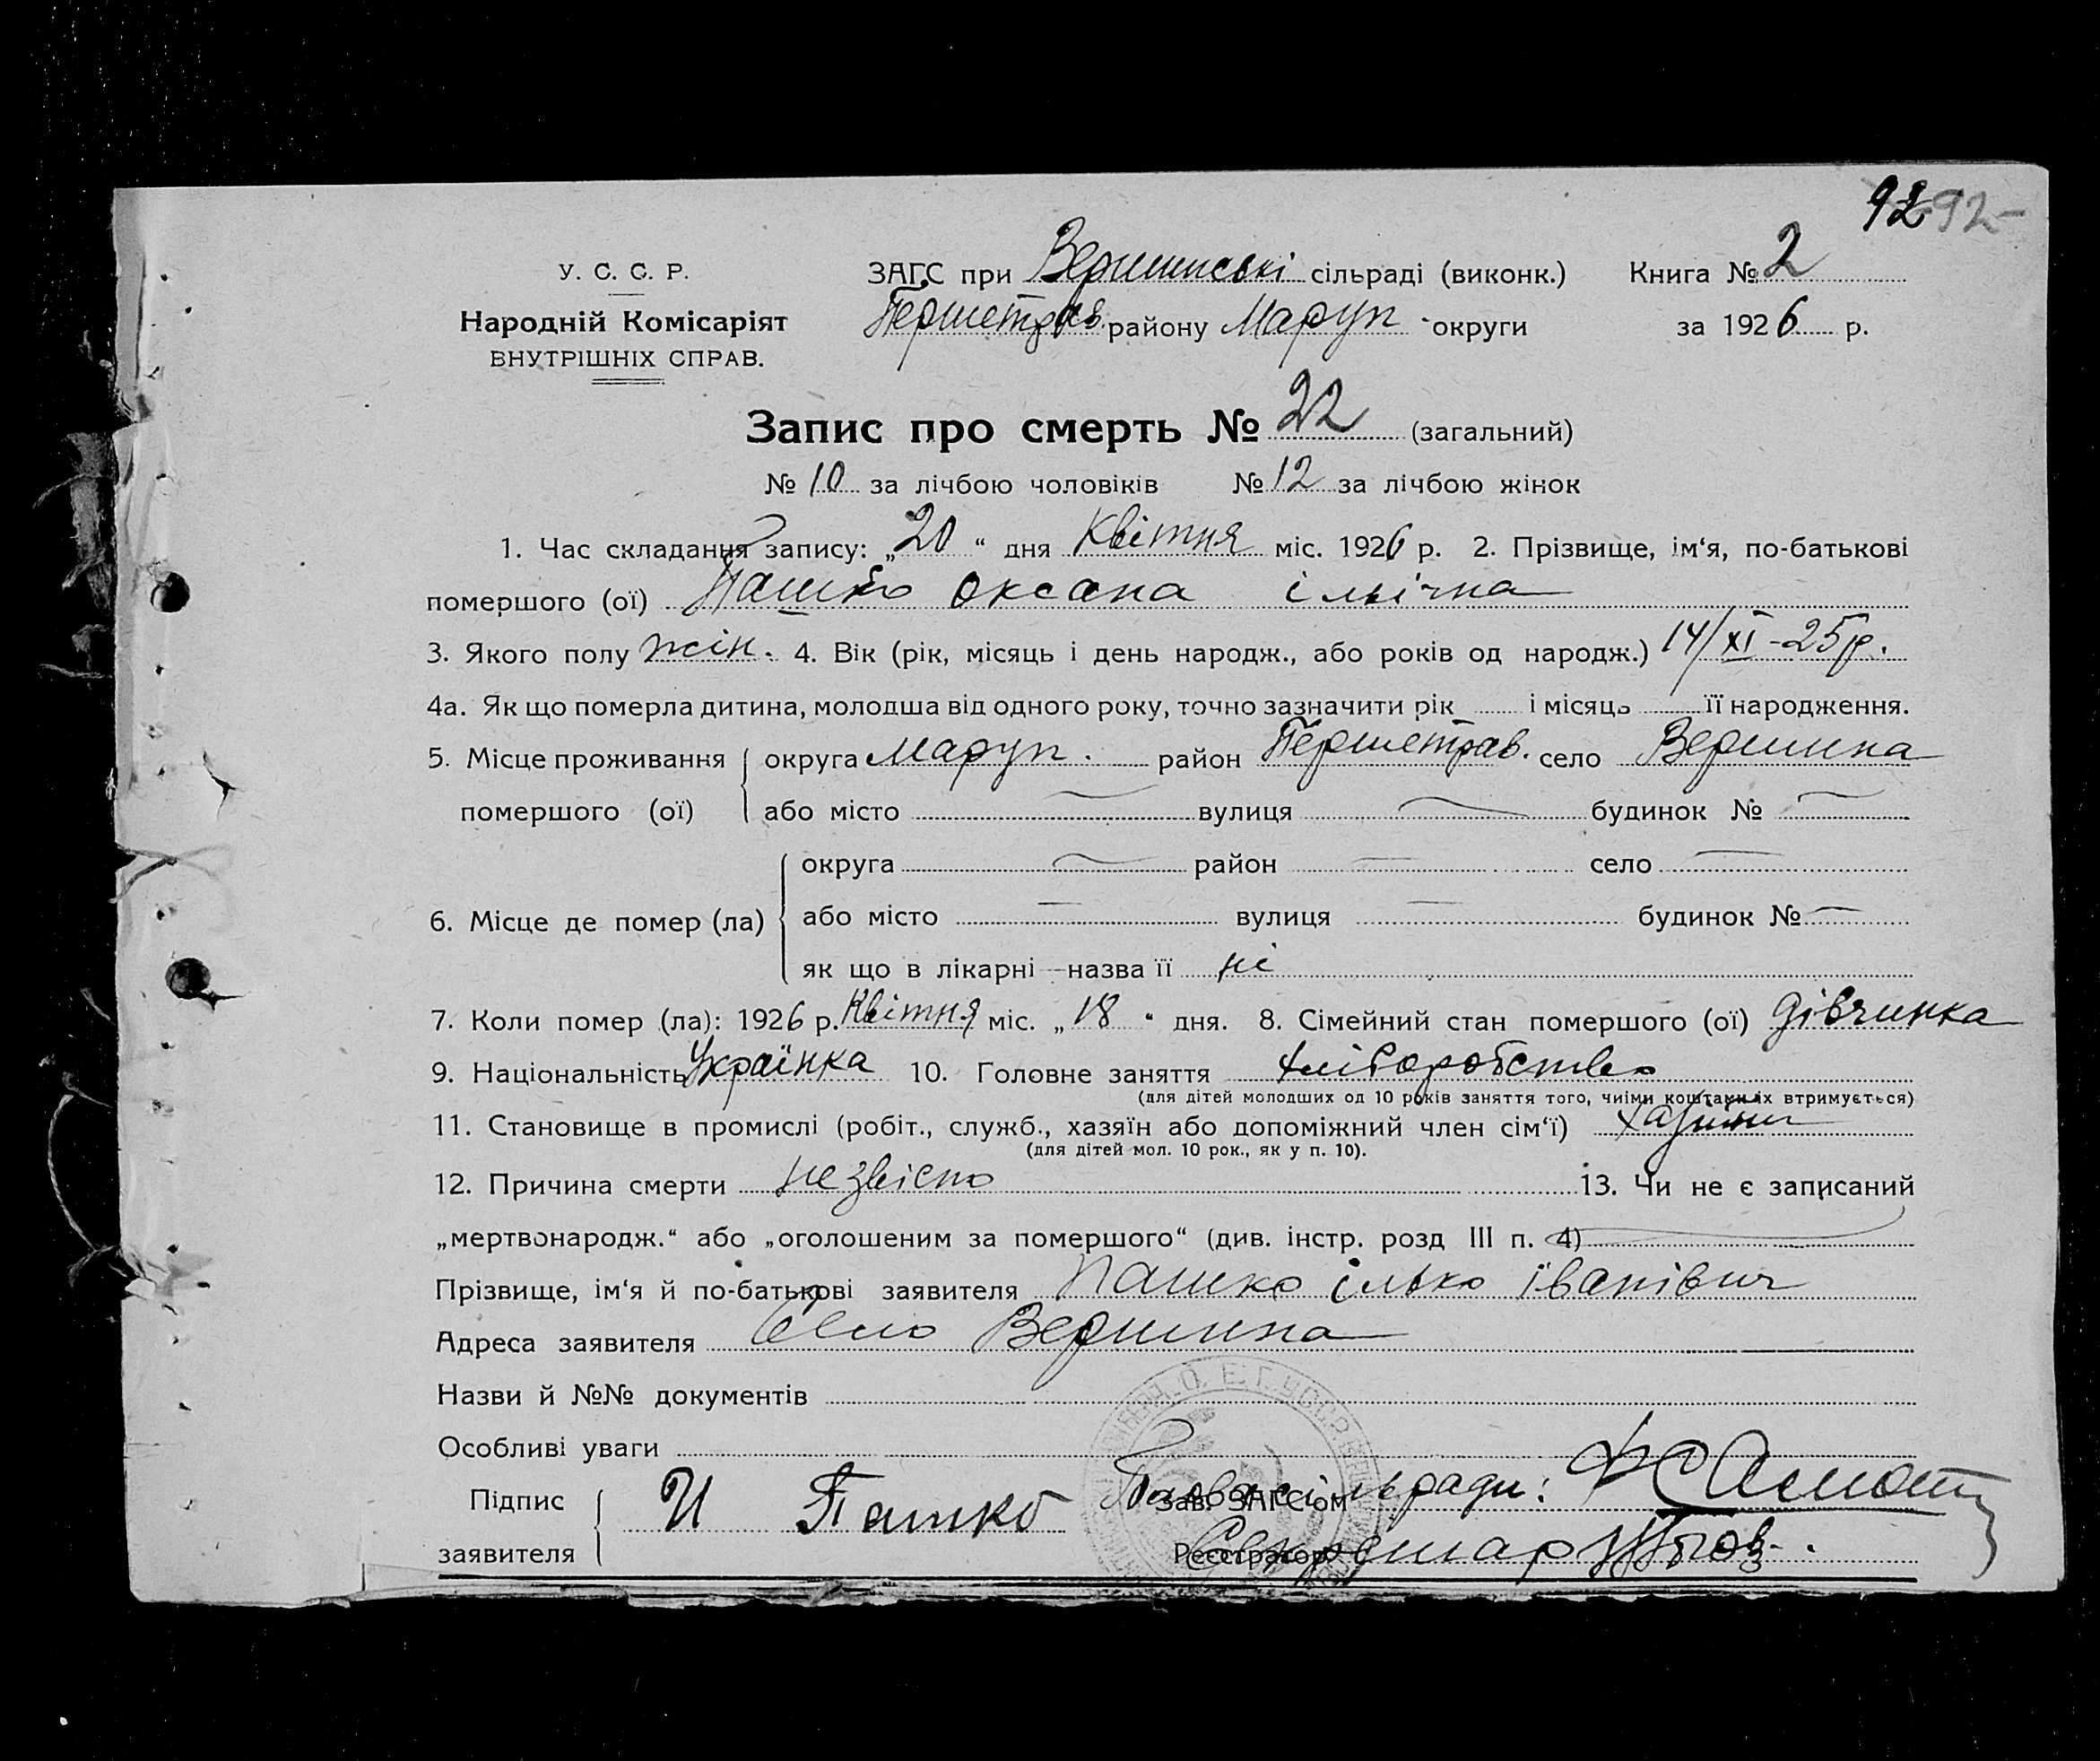 92 92-
У. С. С. Р.
ЗАГС при Вершинські сільраді (виконк.) Книга № 2
Народній Комісаріят
Першетрав. району Маруп округи за 1926 р.
ВНУТРІШНІХ СПРАВ.
Запис про смерть № 22 (загальний)
№ 10 за лічбою чоловіків № 12 за лічбою жінок
1. Час складання запису: „20“ дня Квітня міс. 1926 р. 2. Прізвище, ім‘я, по-батькові
помершого (ої) Пашко Оксана ільічна
3. Якого полу жін. 4. Вік (рік, місяць і день народж., або років од народж.) 14/XI-25р.
4а. Як що померла дитина, молодша від одного року, точно зазначити рік і місяць її народження.
5. Місце проживання округа Маруп. район Першетрав. село Вершина
помершого (ої) або місто — вулиця — будинок № —
округа — район — село —
6. Місце де помер (ла) або місто — вулиця — будинок № —
як що в лікарні —назва її ні
7. Коли помер (ла): 1926 р. Квітня міс. „18“ дня. 8. Сімейний стан помершого (ої) дівчинка
9. Національність Українка 10. Головне заняття хліборобство
(для дітей молодших од 10 років заняття того, чиїми коштами їх втримується)
11. Становище в промислі (робіт., служб., хазяїн або допоміжний член сім‘ї)
(для дітей мол. 10 рок., як у п. 10).
12. Причина смерти незвісно 13. Чи не є записаний
„мертвонародж.“ або „оголошеним за помершого“ (див. інстр. розд III п. 4)
Прізвище, ім‘я й по-батькові заявителя Пашко ілько іванівич
Адреса заявителя Село Вершина
Назви й №№ документів
Особливі уваги
Підпис И Пашко Голова сільради:
Зав. ЗАГС‘ом
заявителя Реєстратор Секретар